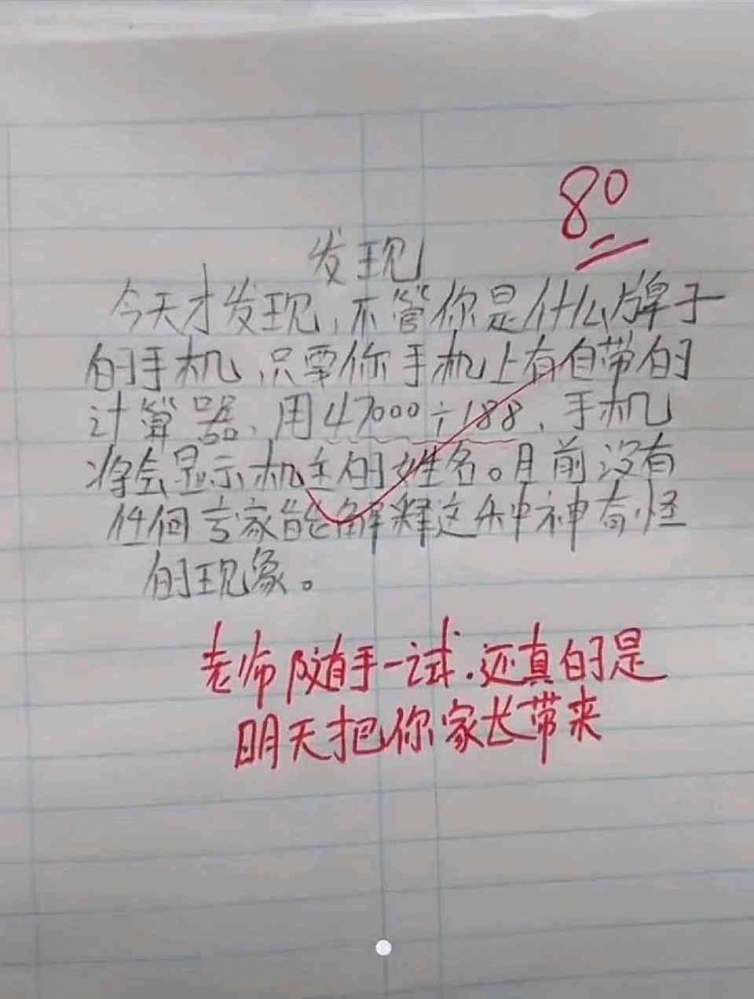 80
发现
今天才发现，不管你是什么牌子
的手机，只要你手机上有自带的
计算器，用47000÷188，手机
将会显示机主的姓名。目前没有
任何专家能解释这种神奇怪
的现象。
老师随手一试.还真的是
明天把你家长带来